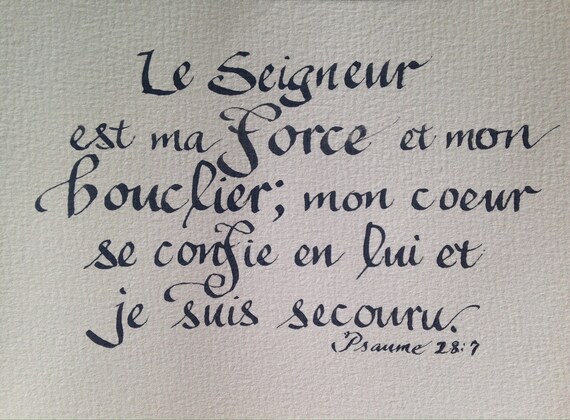 Le Seigneur
est ma Force et mon
bouclier; mon coeur
se confie en lui et
je suis secouru.
Psaume 28:7